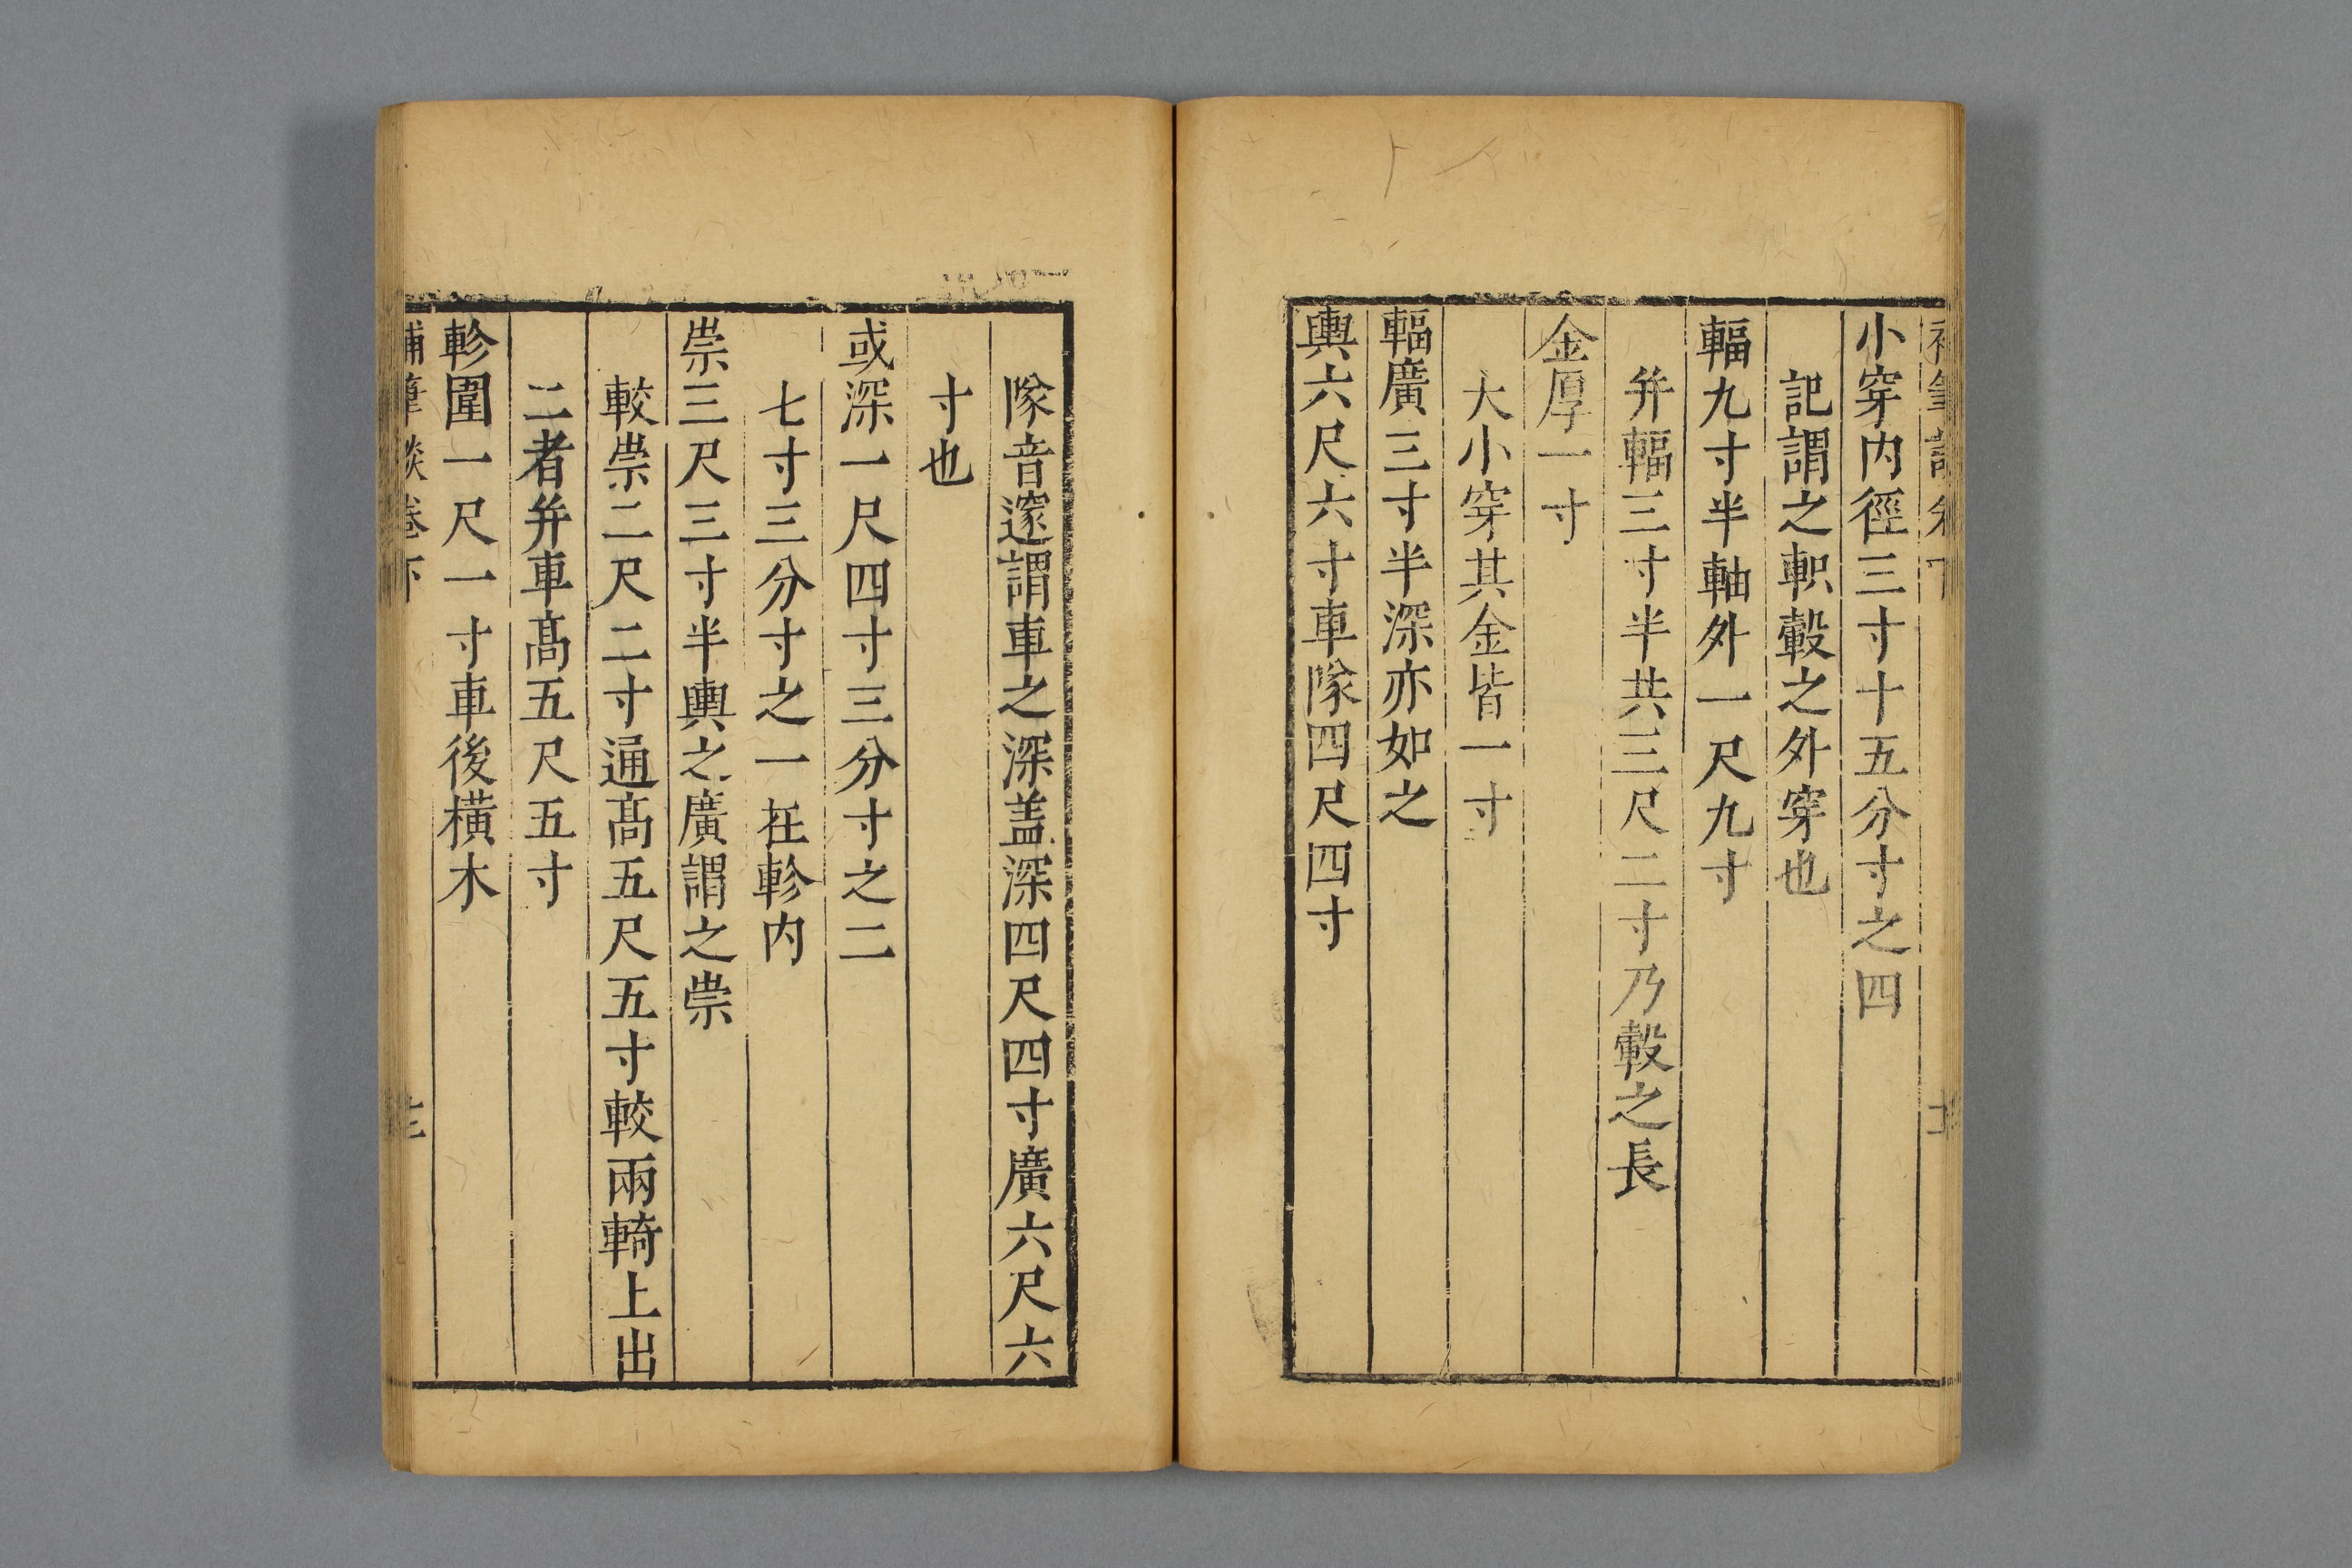 小穿内徑三寸十五分寸之四
記謂之軹轂之外穿也
輻九寸半軸外一尺九寸
并輻三寸半共三尺二寸乃轂之長
金厚一寸
大小穿其金皆一寸
輻廣三寸半深亦如之
輿六尺六寸車隊四尺四寸
隊音邃謂車之深盖深四尺四寸廣六尺六
寸也
或深一尺四寸三分寸之二
七寸三分寸之一在軫内
崇三尺三寸半輿之廣謂之崇
較崇二尺二寸通高五尺五寸較兩輢上出
二者并車高五尺五寸
軫圍一尺一寸車後橫木
補筆談卷下